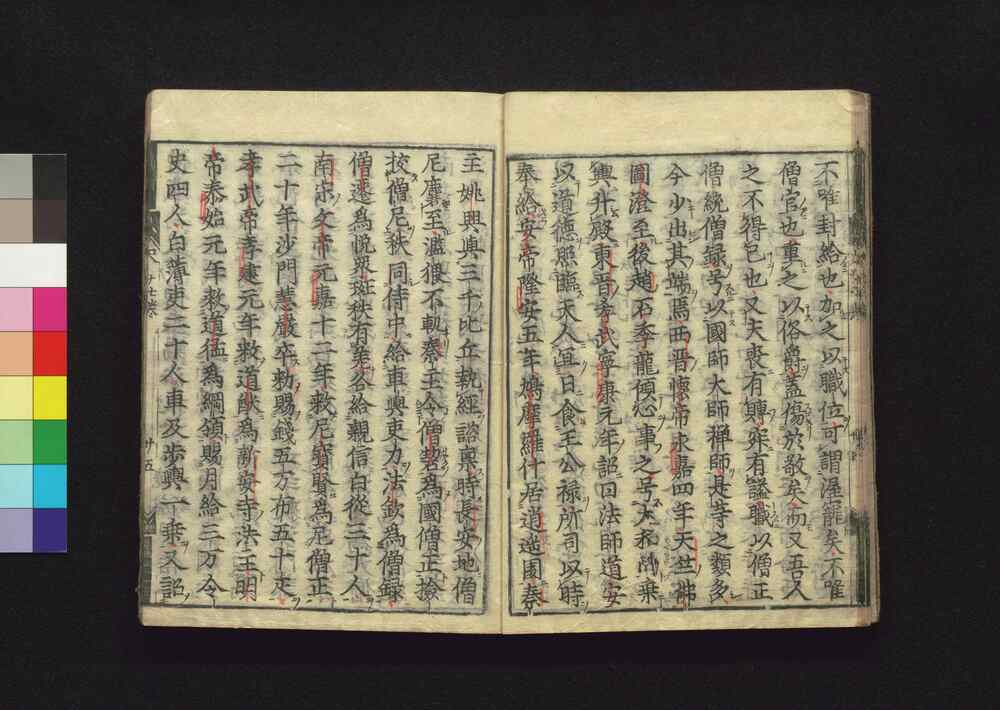 不唯封給也加之以職位可謂渥寵矣不唯
僧官也重之以俗爵蓋傷於敬矣而又吾人
之不得已也又夫喪有賵卒有謚職以僧正
僧統僧録号以國師大師禅師是等之類多
今少出其端焉西晋懐帝永嘉四年天竺佛
圖澄至後趙石季龍傾心事之号大和尚乗
輿升殿東晋孝武寧康元年詔曰法師道安
以道徳照臨天人宜日食王公禄所司以時
奉給安帝隆安五年鳩摩羅什居逍遥園秦
主姚興與三千比丘執經諮稟時長安地僧
尼麕至濫猥不軌秦王令僧䂮為國僧正撿
挍僧尼秩同侍中給車輿吏力法欽為僧録
僧遷為悦衆班秩有差各給親信白從三十人
南宋文帝元嘉十二年救尼寳賢為尼僧正
二十年沙門慧嚴卒勅賜錢五万布五十疋
孝武帝孝建元年敕道猷為新安寺法主明
帝泰始元年敕道猛為綱領賜月給三万令
史四人白薄吏二十人車及歩輿一乗又詔
廿五